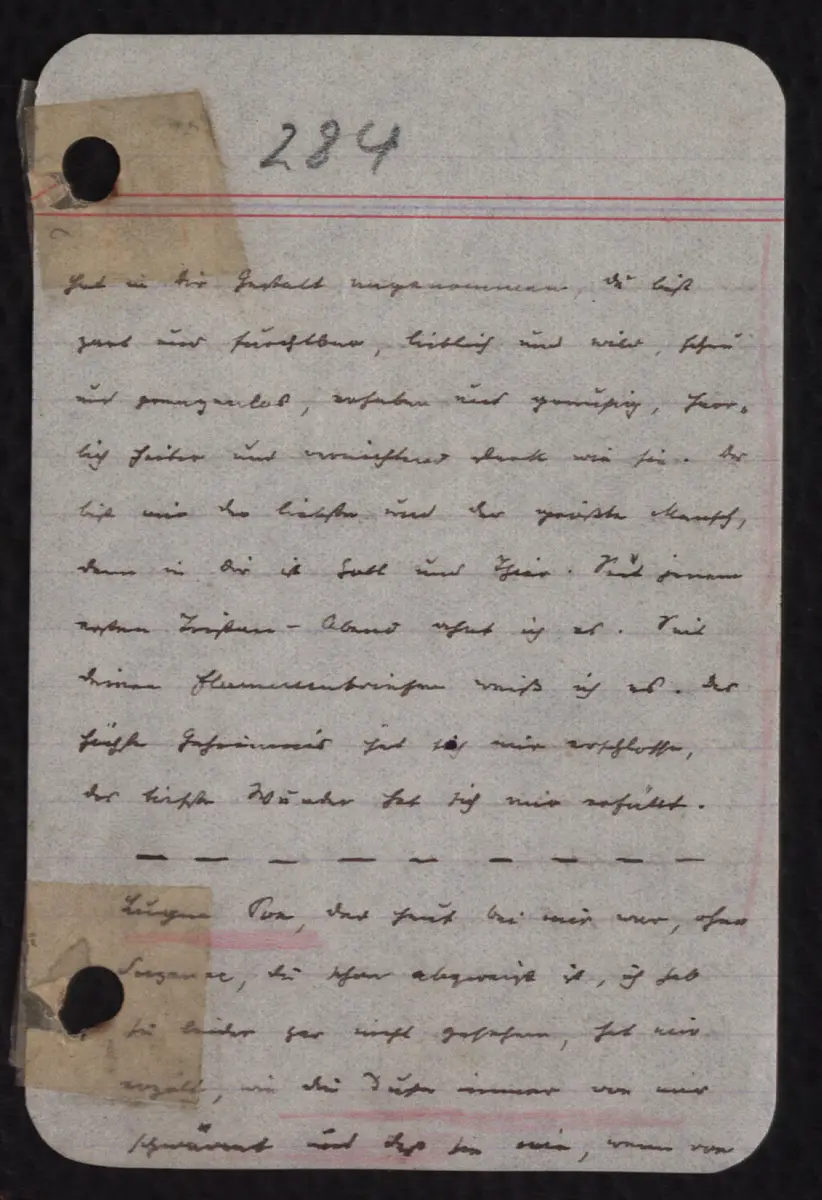 284
hat in dir Gestalt angenommen, du bist
zart und furchtbar, lieblich und wild, scheu
und grenzenlos, erhaben und grausig, herr-
lich heiter und vernichtend dunkel wie sie. Du
bist mir der liebste und der größte Mensch,
denn in dir ist Gott und Thier. Seit jenem
ersten Tristan-Abend ahnt ich es. Seit
deinen Flammenbriefen weiß ich es. Das
höchste Geheimnis hat sich mir erschlossen,
das tiefste Wunder hat sich mir erfüllt.
— — — — — — — — —
Lugné Poe, der heut bei mir war, ohne
Suzanne, die schon abgereist ist, ich hab
sie leider gar nicht gesehen, hat mir
erzält, wie die Duse immer von mir
schwärmt und daß sie mir, wenn von